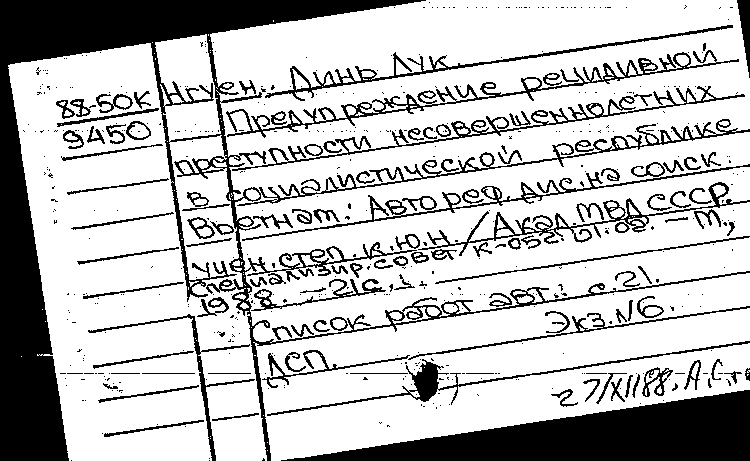 88-50К
9450
Нгуен.. Динь Лук.
Предупреждение рецидивной
преступности несовершеннолетних
в социалистической республике
Вьетнам: Автореф. дис. на соиск.
учен. степ. к.ю.н. / Акад. МВД СССР.
Специализир. совет К-052.01.02. — М.,
1988. — 21с.
Список работ авт.: с.21.
ДСП. Экз. №6.
27/XII88.